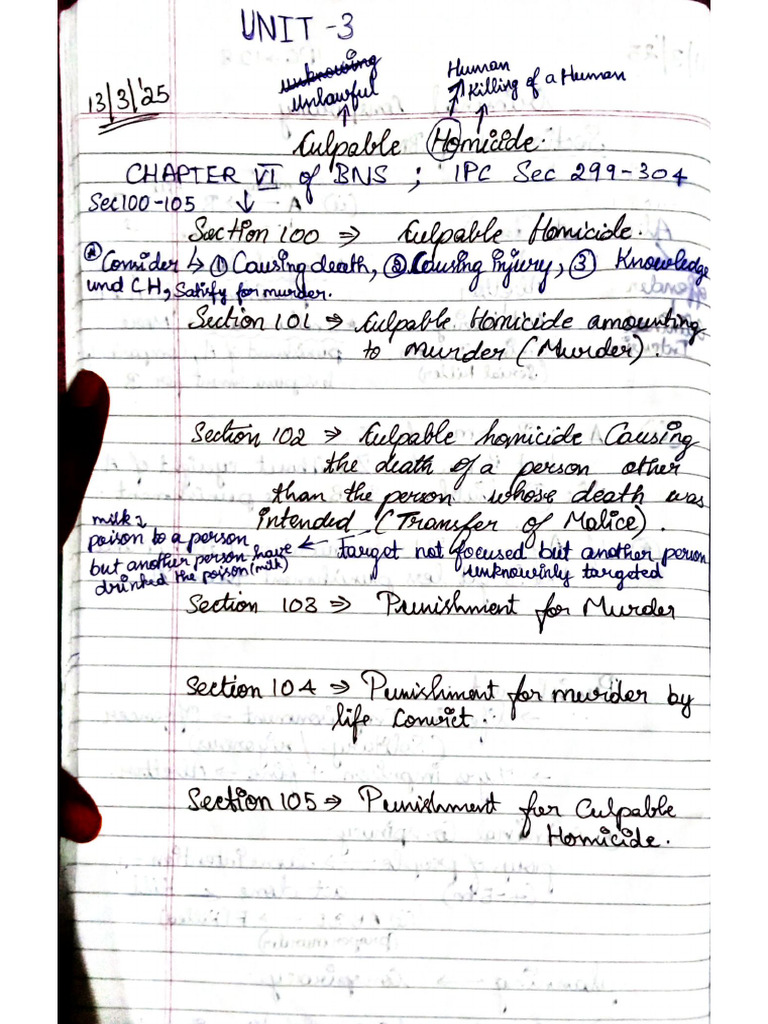 UNIT - 3
13/3/'25
unknowing
unlawful
Human
Killing of a Human
Culpable Homicide.
CHAPTER VI of BNS ; IPC Sec 299-304
Sec 100-105
Section 100 ⇒ Culpable Homicide.
Consider ↳ ① Causing death, ② Causing injury, ③ Knowledge
und CH, Satisfy for murder.
Section 101 ⇒ Culpable Homicide amounting
to murder (Murder).
Section 102 ⇒ Culpable homicide Causing
the death of a person other
than the person whose death was
intended (Transfer of Malice).
milk
poison to a person
but another person have
drinked the poison (milk)
← target not focused but another person
unknowinly targeted
Section 103 ⇒ Punishment for Murder
Section 104 ⇒ Punishment for murder by
life Convict.
Section 105 ⇒ Punishment for Culpable
Homicide.